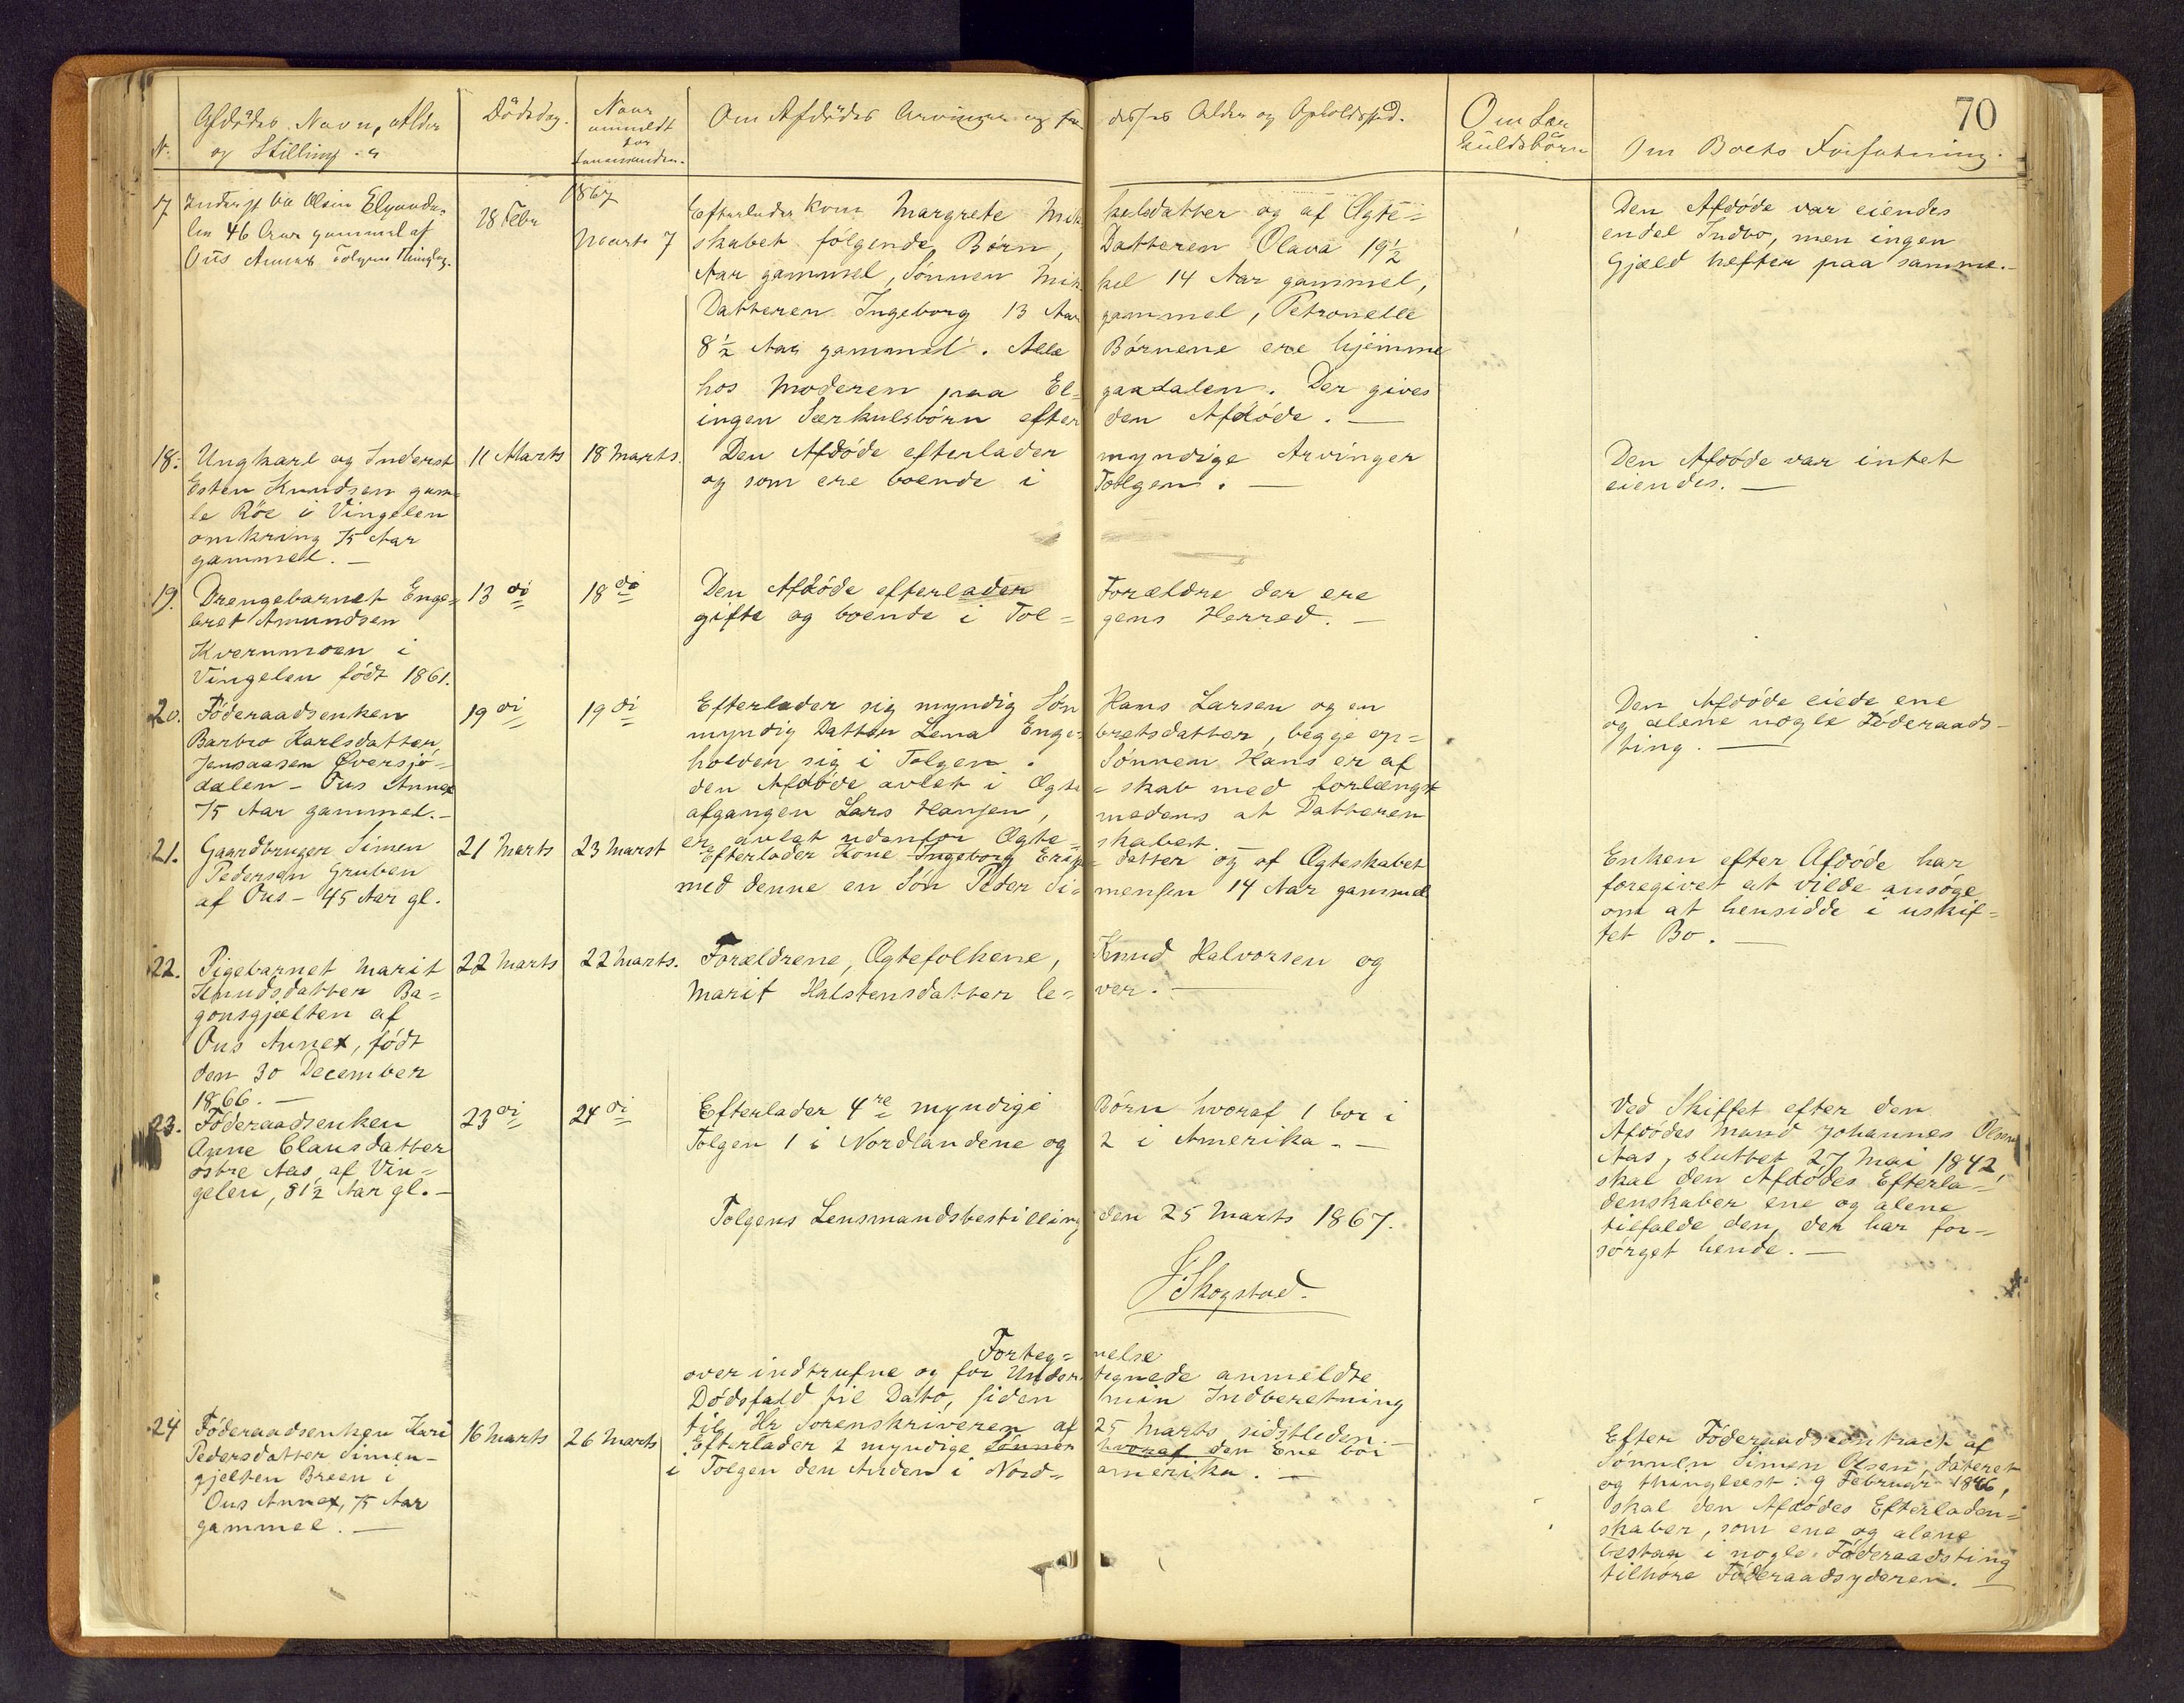 70
N.
Afdödes Navn, Alder
og Stilling.
Dödsdag.
Naar
anmeldt
for
Lensmanden.
Om Afdödes Arvinger og
disses Alder og Opholdssted.
Om Sær
kuldsbörn
Om Boets Forfatning.
1867
17
Inderst Ole Olsen Elgaada-
len 46 Aar gammel af
Ous Annex Tolgens Thinglag.
28 Febr
Marts 7
Efterlader kone Margrete Mikkelsdatter og af Ægte=
skabet fölgende Börn, Datteren Olava 19½
Aar gammel, Sönnen Mikkel 14 Aar gammel,
Datteren Ingeborg 13 Aar gammel, Petronelle
8½ Aar gammel. Alle Börnene ere hjemme
hos Moderen paa El= gaadalen. Der gives
ingen Særkulsbörn efter den Afdöde. —
Den Afdöde var eiendes
endel Indbo, men ingen
Gjæld hefter paa samme. —
18.
Ungkarl og Inderst
Esten Knudsen gam=
le Röe i Vingelen
omkring 75 Aar
gammel. —
11 Marts
18 Marts.
Den Afdöde efterlader myndige Arvinger
og som ere boende i Tolgen. —
Den Afdöde var intet
eiendes. —
19.
Drengebarnet Enge=
bret Amundsen
Kvernmoen i
Vingelen födt 1861.
13 di
18 do
Den Afdöde efterlader Forældre der ere
gifte og boende i Tol= gens Herred. —
20.
Föderaadsenken
Barbro Karlsdatter
Jensaasen Översjö=
dalen – Ous Annex
75 Aar gammel. —
19 di
19 di
Efterlader sig myndig Sön Hans Larsen og en
myndig Datter Lena Enge= bretsdatter, begge op=
holden sig i Tolgen. Sönnen Hans er af
den Afdöde avlet i Ægte= skab med forlængst
afgangen Lars Hansen, medens at Datteren
er avlet udenfor Ægte= skabet.
Den Afdöde eiede ene
og alene nogle Föderaads-
ting. —
21.
Gaardbruger Simen
Pedersen Gruben
af Ous – 45 Aar gl.
21 Marts
23 Marst
Efterlader Kone Ingeborg Eriks= datter og af Ægteskabet
med denne en Sön Peder Si= mensen 14 Aar gammel
Enken efter Afdöde har
foregivet at vilde ansöge
om at hensidde i uskif=
tet Bo. —
22.
Pigebarnet Marit
Knudsdatter Ba=
gonsgjelten af
Ous Annex, födt
den 30 December
1866. —
22 Marts
22 Marts.
Forældrene, Ægtefolkene, Knud Halvorsen og
Marit Halstensdatter le= ver. —
23.
Föderaadsenken
Anne Clausdatter
östre Aas af Vin=
gelen, 81½ Aar gl. —
23 di
24 di
Efterlader 4re myndige Börn hvoraf 1 bor i
Tolgen 1 i Nordlandene og 2 i Amerika. —
Ved Skiftet efter den
Afdödes Mand Johannes Olsen
Aas, sluttet 27 Mai 1842,
skal den Afdödes Efterla=
denskaber ene og alene
tilfalde den, der har for=
sörget hende. —
Tolgens Lensmandsbestilling den 25 Marts 1867.
J. Skogstad.
Forteg= nelse
over indtrufne og for Under= tegnede anmeldte
Dödsfald til Dato, siden min Indberetning
til Hr Sorenskriveren af 25 Marts sidstleden. —
24
Föderaadsenken Kari
Pedersdatter Simen-
gjelten Breen i
Ous Annex, 75 Aar
gammel. —
16 Marts
26 Marts
Efterlader 2 myndige Sönner hvoraf den Ene bor
i Tolgen den Anden i Nord= amerika. —
Efter Föderaadscontract af
Sönnen Simen Olsen, dateret
og thinglæst 9 Februar 1866,
skal den Afdödes Efterladen=
skaber, som ene og alene
bestaa i nogle Föderaadsting
tilhöre Föderaadsyderen. —